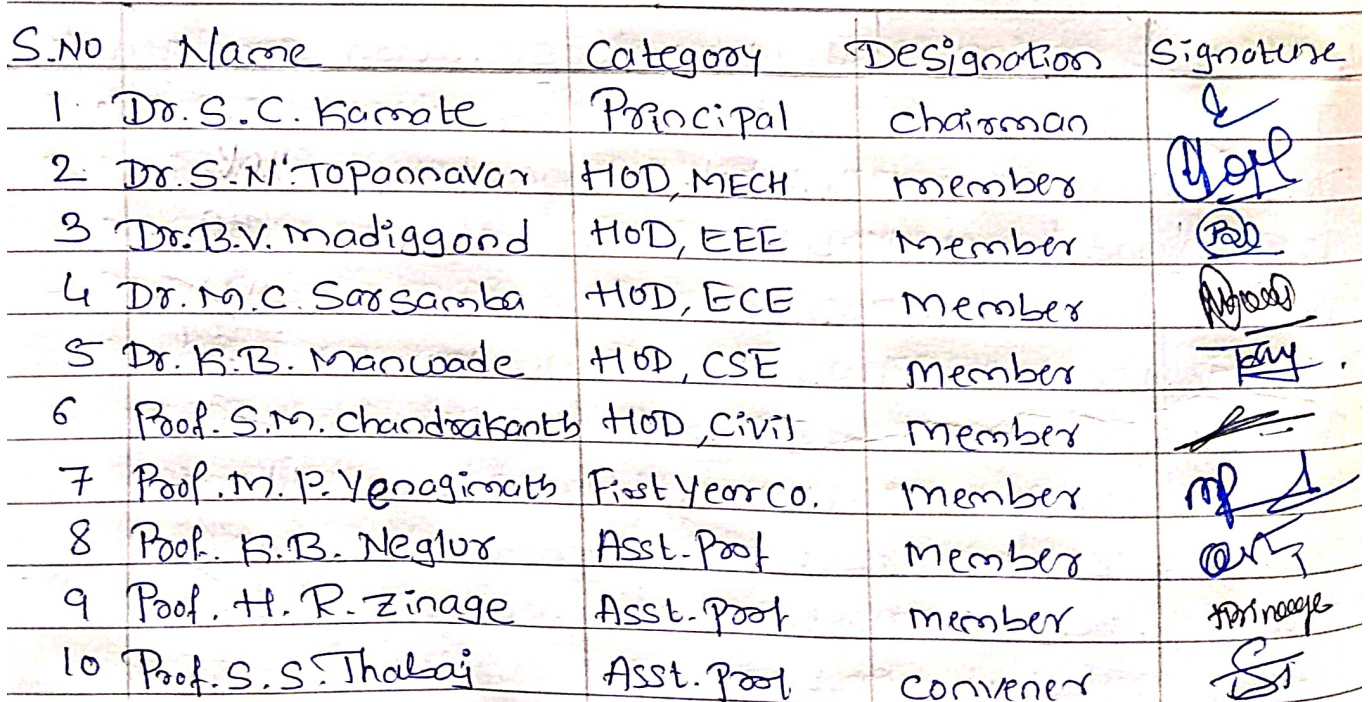 S.No Name Category Designation Signature
1. Dr. S. C. Kamate Principal chairman
2. Dr. S. N. Topannavar HOD, MECH member
3 Dr. B.V. madiggond HOD, EEE Member
4 Dr. M. C. Sarsamba HOD, ECE Member
5 Dr. K. B. Manwade HOD, CSE Member
6 Prof. S.M. Chandrakanth HOD, Civil Member
7 Prof. M. P. Yenagimath First Year Co. Member
8 Prof. K. B. Neglur Asst. Prof Member
9 Prof. H. R. Zinage Asst. Prof member
10 Prof. S. S. Thabaj Asst. Prof convener